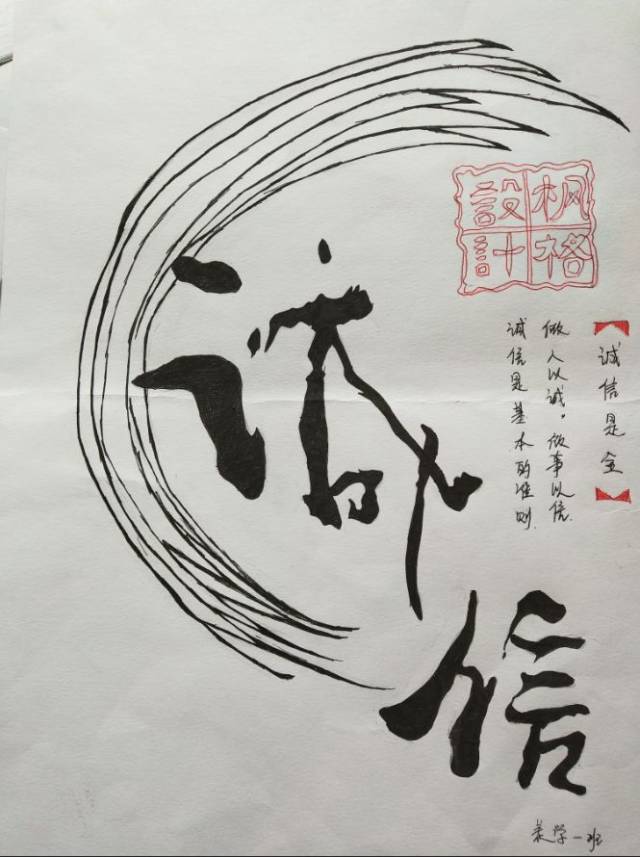 诚信
枫格
設計
诚信是金
做人以诚。做事以信.
诚信是基本的准则.
美学一班